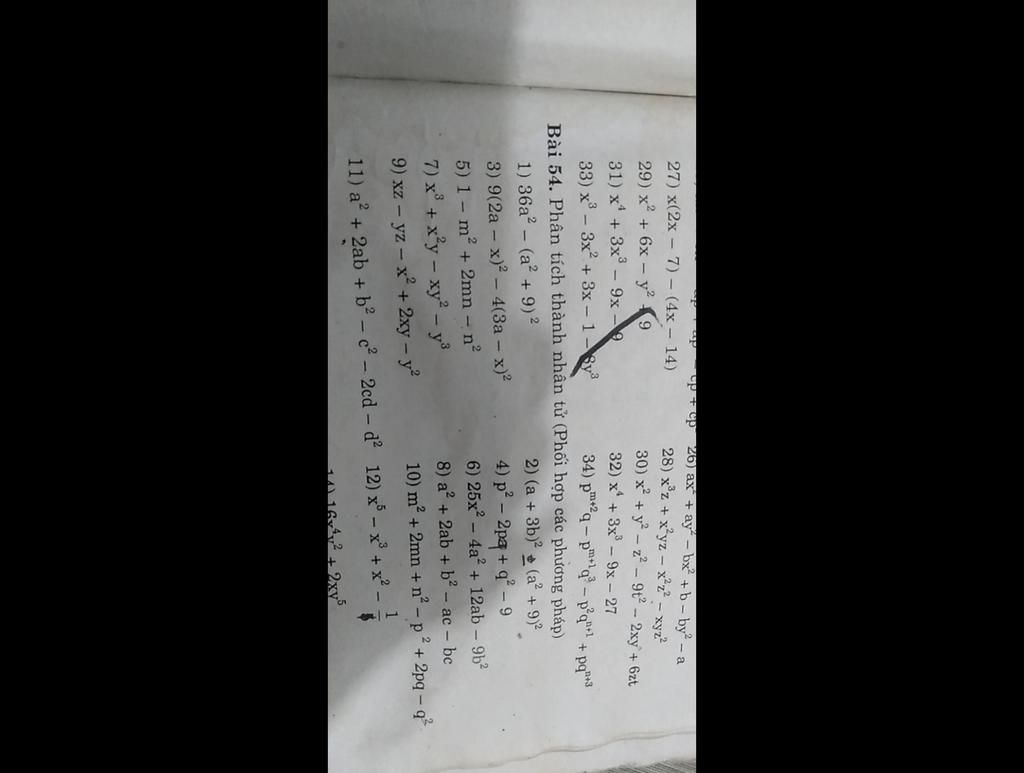 26) ax² + ay² − bx² + b − by² − a
27) x(2x − 7) − (4x − 14) 28) x³z + x²yz − x²z² − xyz²
29) x² + 6x − y² + 9 30) x² + y² − z² − 9t² − 2xy + 6zt
31) x⁴ + 3x³ − 9x − 9 32) x⁴ + 3x³ − 9x − 27
33) x³ − 3x² + 3x − 1 − 8y³ 34) pᵐ⁺²q − pᵐ⁺¹q³ − p²qⁿ⁺¹ + pqⁿ⁺³
Bài 54. Phân tích thành nhân tử (Phối hợp các phương pháp)
1) 36a² − (a² + 9)² 2) (a + 3b)² − (a² + 9)²
3) 9(2a − x)² − 4(3a − x)² 4) p² − 2pq + q² − 9
5) 1 − m² + 2mn − n² 6) 25x² − 4a² + 12ab − 9b²
7) x³ + x²y − xy² − y³ 8) a² + 2ab + b² − ac − bc
9) xz − yz − x² + 2xy − y² 10) m² + 2mn + n² − p² + 2pq − q²
11) a² + 2ab + b² − c² − 2cd − d² 12) x⁵ − x³ + x² − 1
14) 16x⁴y² + 2xy⁵